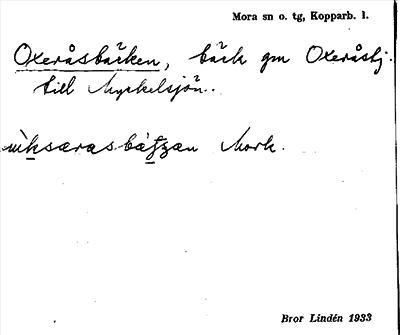 Mora sn o. tg, Kopparb. l.
Oxeråsbäcken, bäck gm Oxeråstj.
till Myckelsjön.
Mork.
Bror Lindén 1933